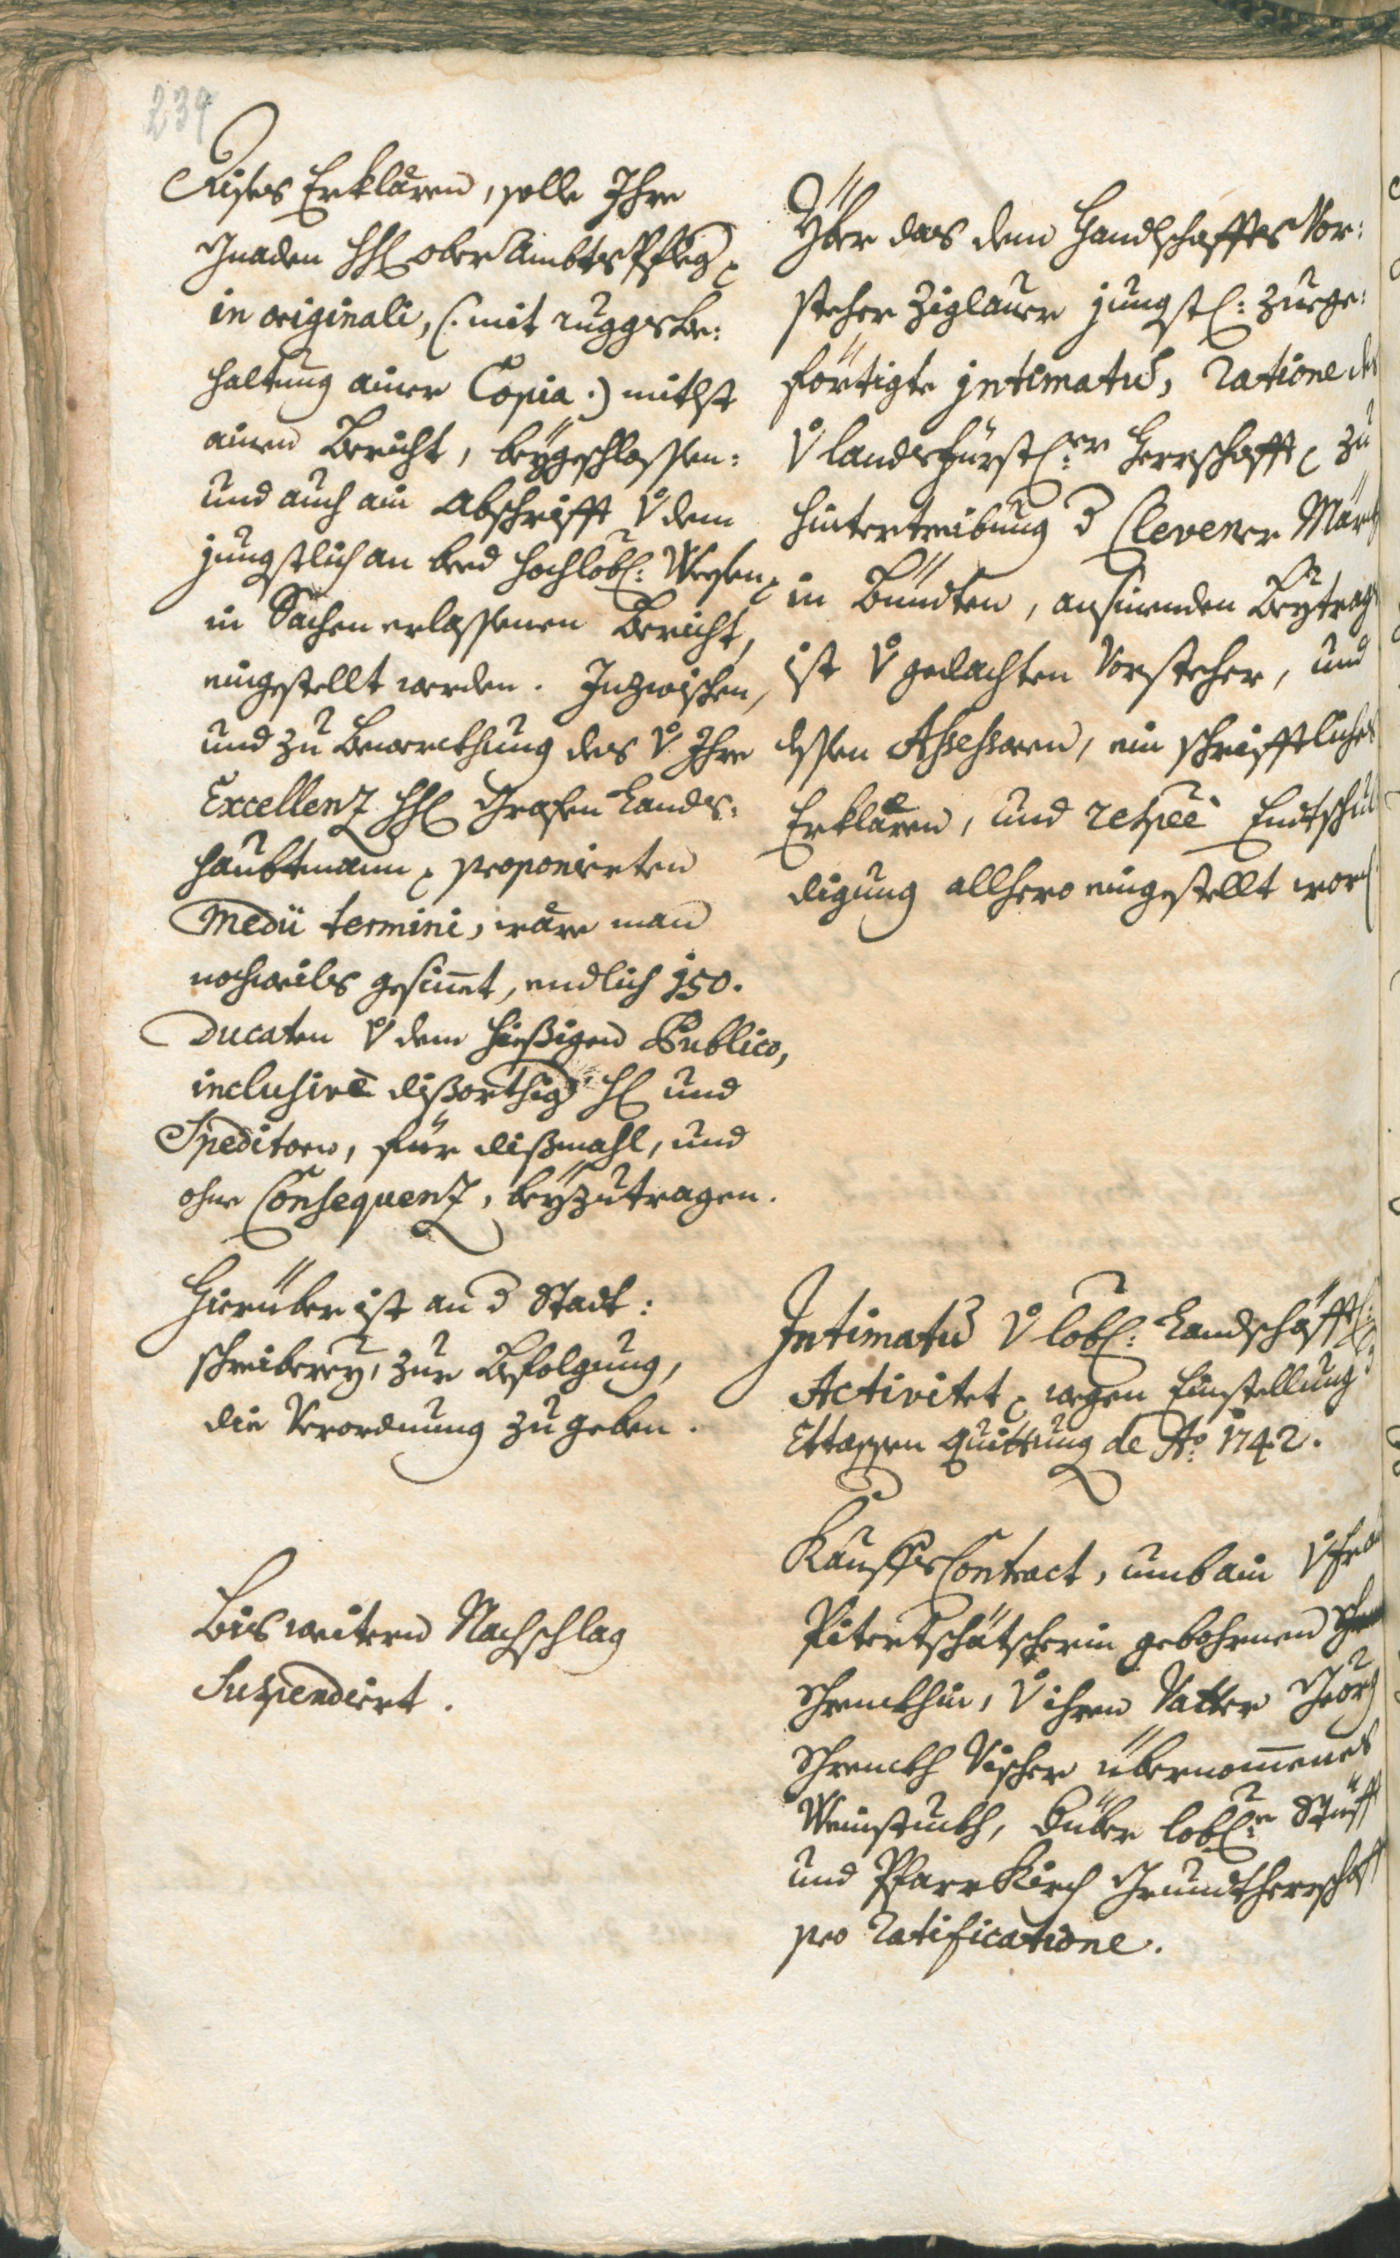 239
Dises Erklären, solle Ihro
Gnaden HH ober Ambts Pfleg
in originali, (: mit ruggsbe:
haltung ainer Copia :) mithst
ainem Bericht, beygeschlossen:
und auch ain Abschrifft v dem
jungstlich an beed hochlobl: Wesen
in Sachen erlassenen Bericht,
eingestellt werden. Inzwischen,
und zu Bewerckhung des v Ihro
Excellenz HH Grafen Lands:
haubtmann proponierten
Medii termini, wäre man
nochmals gesinnet, endlich 150.
Ducaten v dem hießigen Publico,
inclusivè dißorthig H und
Speditorn, für dißmahl, und
ohne Consequenz, beyzutragen.
Hierüber ist an d Stadt:
schreiberey, zur Befolgung,
die Verordnung zu geben.
Bis weitern Nachschlag
Suspendiert.
Yber das dem Handlschaffts Vor:
steher Ziglauer jungstl: zuege:
förtigte jntimatu, ratione des
v landsfürstl:er Herrschafft zu
hintertreibung d Clevener Märckh
in Bündten, ansinenden Beytrags
ist v gedachten Vorsteher, und
dessen Assessorn, ein schrifftliches
Erklären, und respèe Endtschul
digung allhero eingestellt word
Intimatu v lobl: Landschäfftl:
Activitet wegen Einstellung d
Ettappen Quittung de Ao: 1742.
Kauffs Contract, umb ain v Frau
Pitertschätscherin gebohrnen
Schrenckhin, v ihren Vatter Georg
Schrenckh Vischer übernommenes
Weinstuckh, hüber lobl:r Stüfft
und Pfarr Kirch Grundtherrschafft
pro ratificatione.